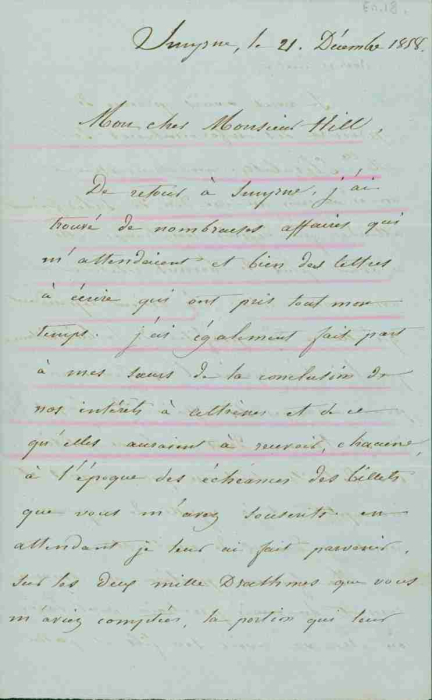 Smyrne, le 21. Décembre 1858.
Mon cher Monsieur Hill,
De retour à Smyrne, j'ai
trouvé de nombreuses affaires qui
m'attendaient et bien des lettres
à écrire qui ont pris tout mon
temps. J'ai également fait part
à mes sœurs de la conclusion de
nos intérêts à Athènes et de ce
qu'elles auraient à recevoir, chacune,
à l'époque des échéances des billets
que vous m'avez souscrits en
attendant je leur ai fait parvenir,
sur les deux mille Drachmes que vous
m'aviez comptées, la portion qui leur